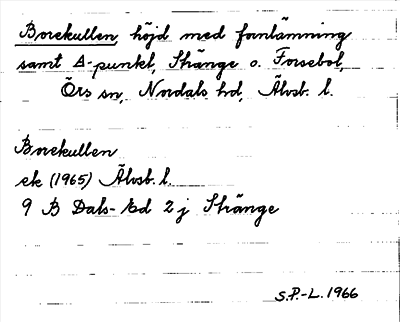 Borekullen, höjd med fornlämning
samt Δ-punkt, Stränge o. Forsebol,
Örs sn, Nordals hd, Älvsb. l.
Borekullen
ek (1965) Älvsb. l.
9 B Dals-Ed 2 j Stränge
S.P.-L. 1966